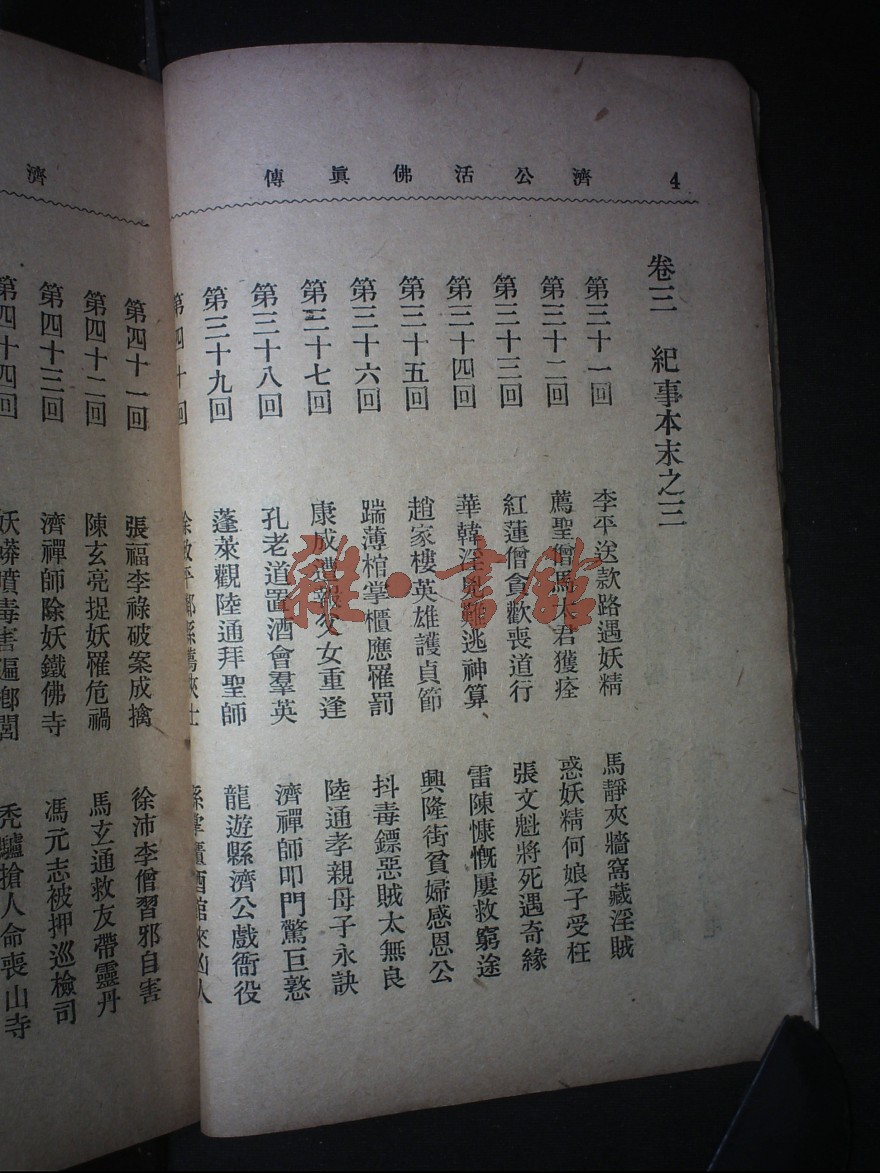 4 濟公活佛眞傳
卷三 紀事本末之三
第三十一回 李平送款路遇妖精 馬靜夾牆窩藏淫賊
第三十二回 薦聖僧馬夫君獲痊 惑妖精何娘子受枉
第三十三回 紅蓮僧貪歡喪道行 張文魁將死遇奇緣
第三十四回 華韓淫兇難逃神算、 雷陳慷慨屢救窮途
第三十五回 趙家樓英雄護貞節 興隆街貧婦感恩公
第三十六回 踹薄棺掌櫃應罹罰 抖毒鏢惡賊太無良
第三十七回 康成遭報父女重逢 陸通孝親母子永訣
第三十八回 孔老道置酒會羣英 濟禪師叩門驚巨憝
第三十九回 蓬萊觀陸通拜聖師 龍遊縣濟公戲衙役
第四十回
濟
第四十一回 張福李祿破案成擒 徐沛李僧習邪自害
第四十二回 陳玄亮捉妖罹危禍 馬玄通救友帶靈丹
第四十三回 濟禪師除妖鐵佛寺 馮元志被押巡檢司
第四十四回 妖蟒噴毒害遍鄕閭 禿驢搶人命喪山寺
雜·書館